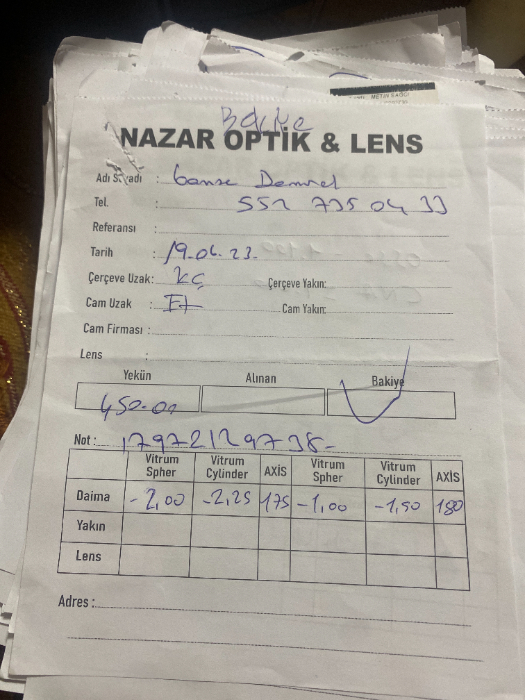 NAZAR OPTİK & LENS
Adı Soyadı :
Tel. : 552 735 04 33
Referansı :
Tarih : 19.06.23.
Çerçeve Uzak: kç Çerçeve Yakın:
Cam Uzak : Cam Yakın:
Cam Firması :
Lens :
Yekün Alınan Bakiye
450.00
Not : 17972129738-
Vitrum Spher Vitrum Cylinder AXİS Vitrum Spher Vitrum Cylinder AXİS
Daima -2,00 -2,25 175 -1,00 -1,50 180
Yakın
Lens
Adres :